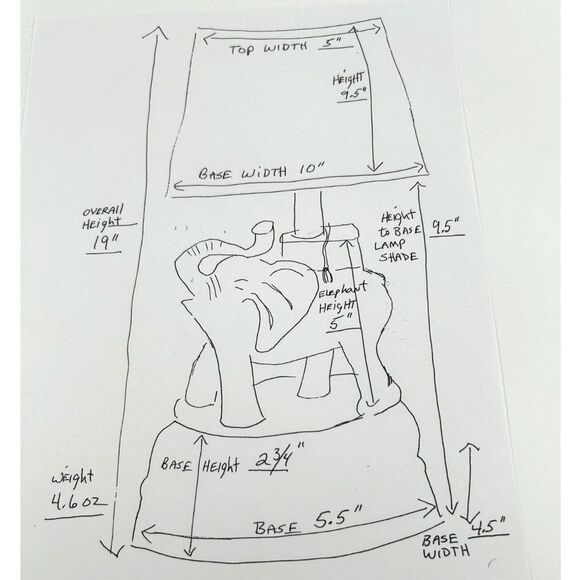 TOP WIDTH 5"
HEIGHT
9.5"
BASE WIDTH 10"
OVERALL
HEIGHT
19"
HEIGHT
TO BASE
LAMP
SHADE
9.5"
ELEPHANT
HEIGHT
5"
BASE HEIGHT 2 3/4"
WEIGHT
4.6 oz
BASE 5.5"
BASE
WIDTH
4.5"